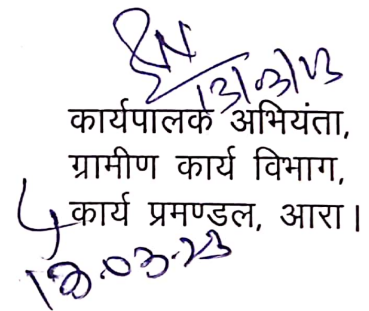 13/03/23
कार्यपालक अभियंता,
ग्रामीण कार्य विभाग,
कार्य प्रमण्डल, आरा।
13.03.23